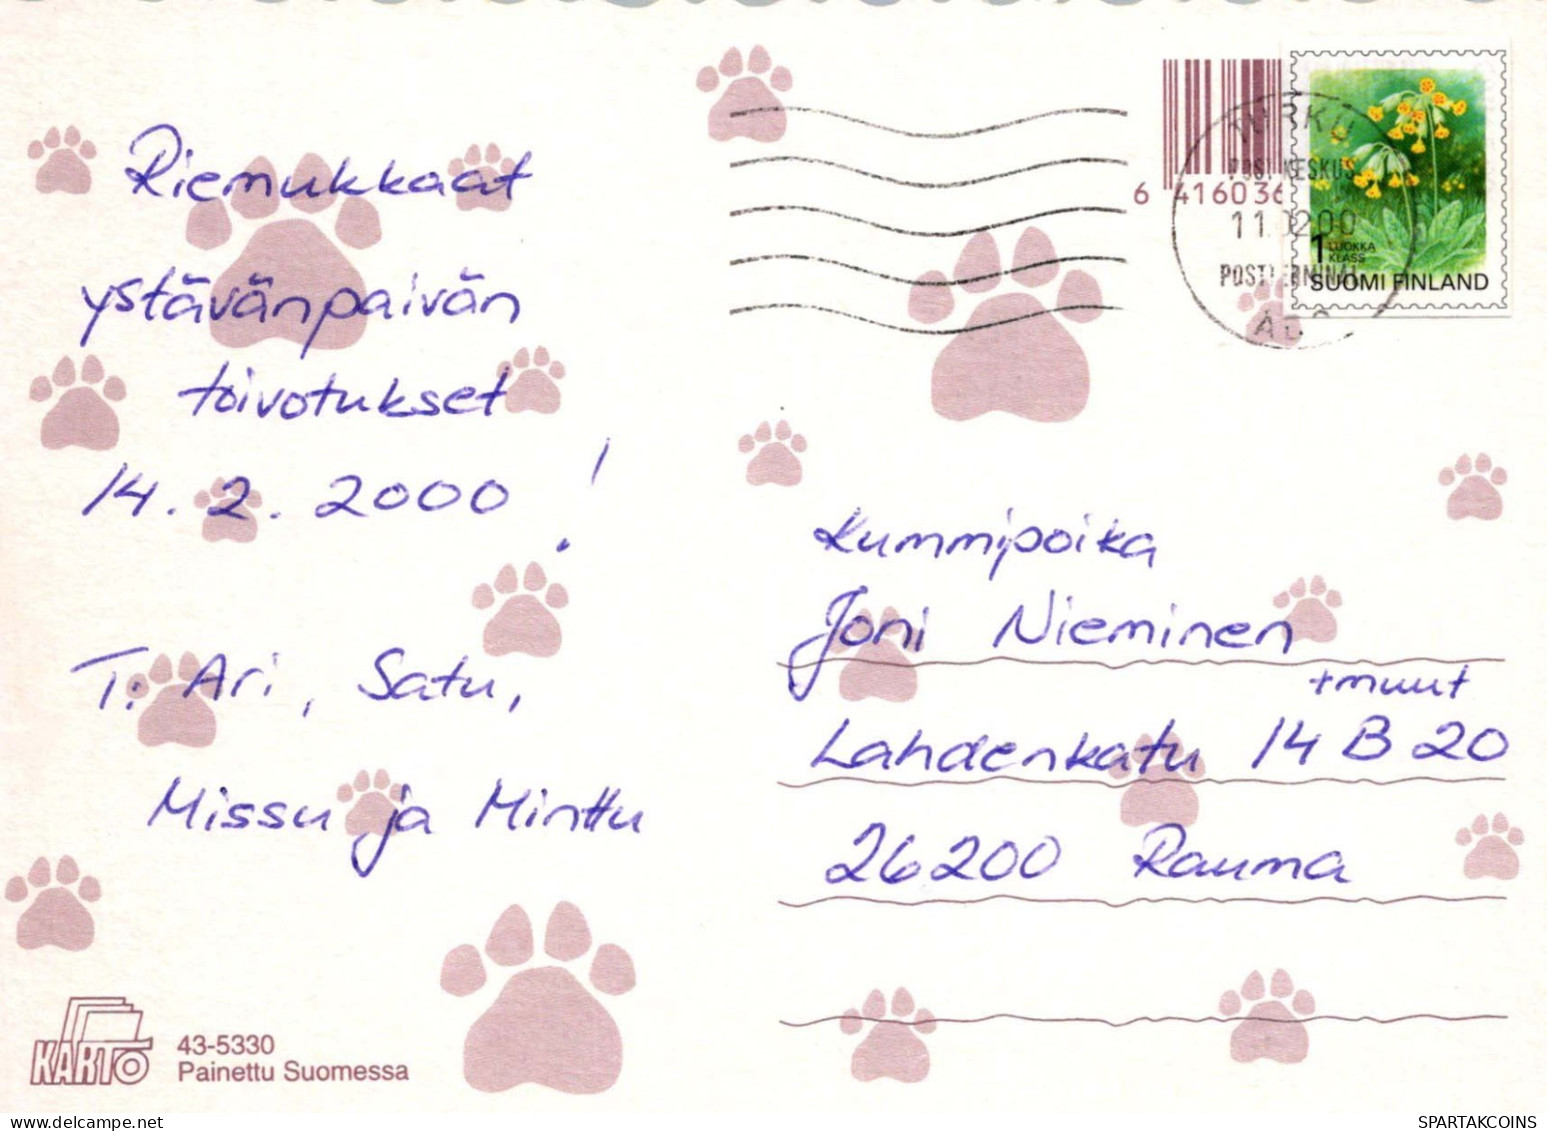 Riemukkaat
ystävänpaivän
toivotukset
14.2.2000!
T. Ari, Satu,
Missu ja Minttu
KARTO
43-5330
Painettu Suomessa
6 416036
TURKU
POSTIKESKUS
11.02.00
POSTTERMINAL
1 LUOKKA
KLASS
SUOMI FINLAND
Kummipoika
Joni Nieminen
+muut
Lahdenkatu 14 B 20
26200 Rauma
SPARTAKCOINS